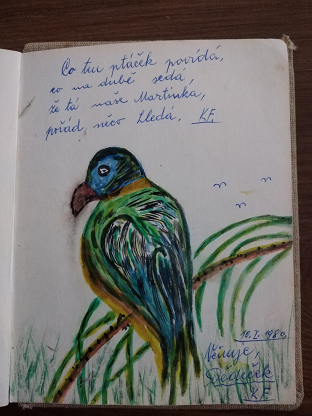 Co ten ptáček povídá,
co na dubě sedá,
že tá naše Martinka,
pořád něco hledá. KF.
10. I. 1980
Věnuje,
Dědeček
KF